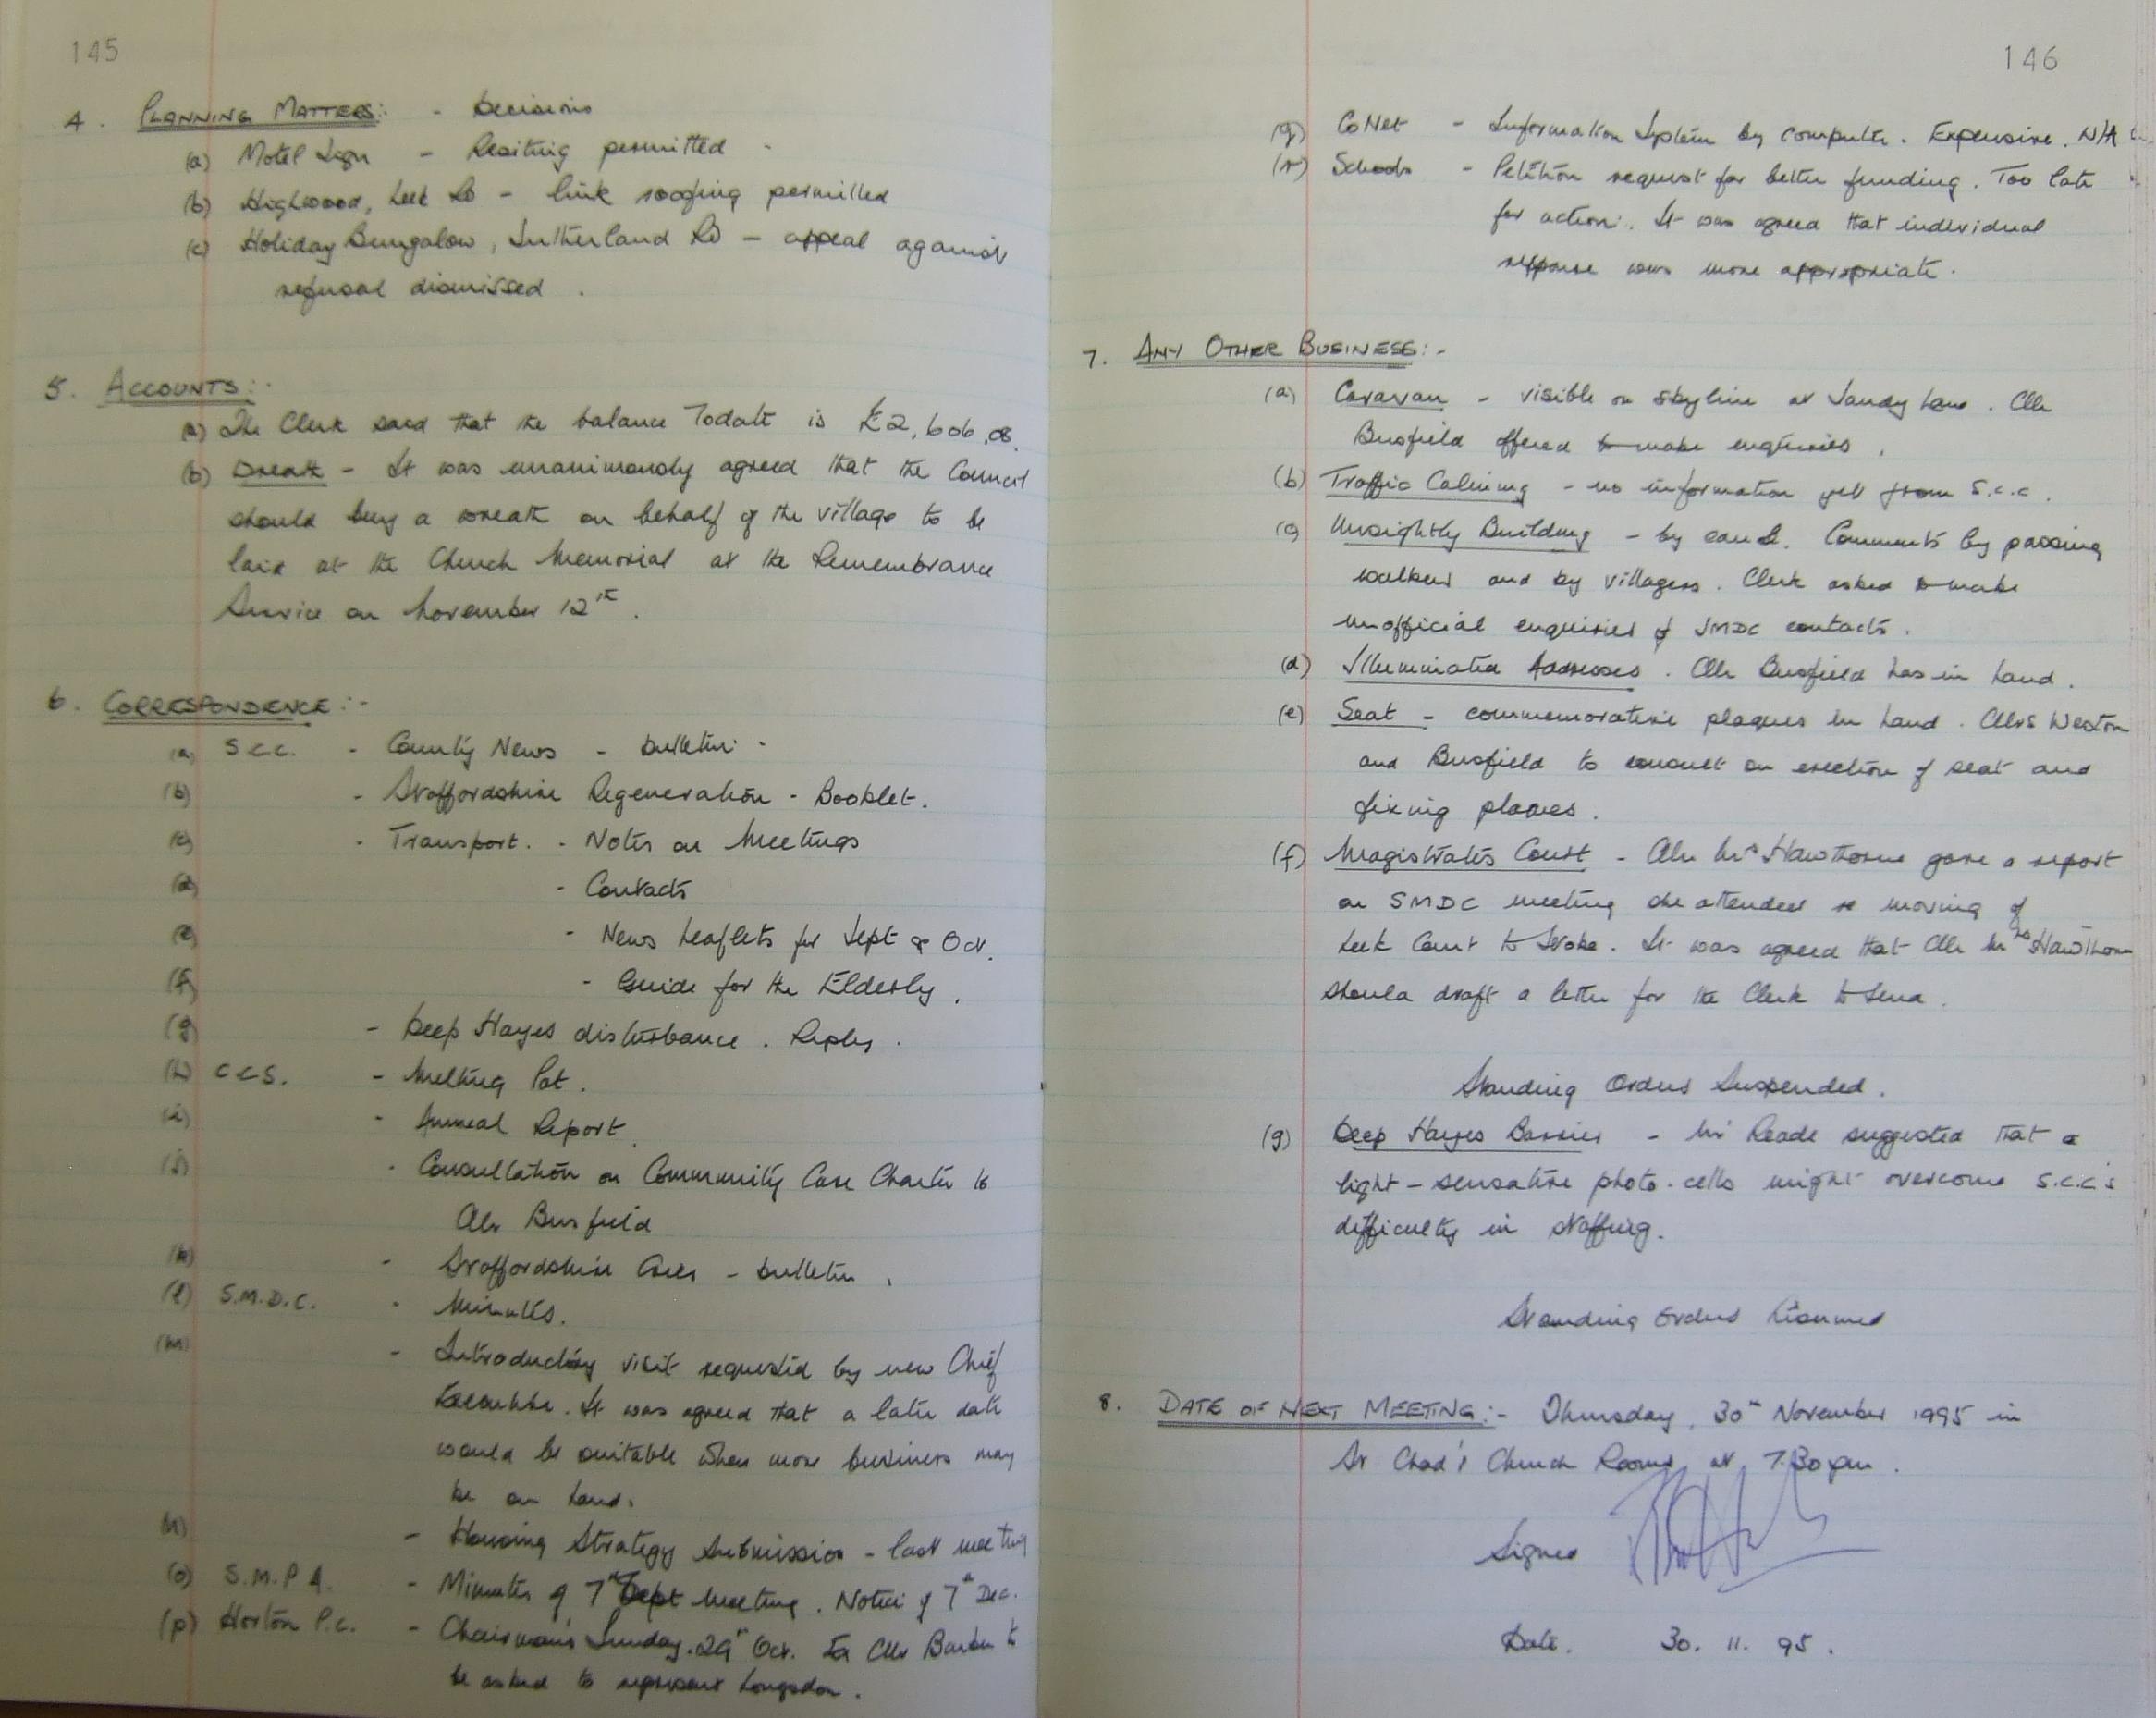 145
4. PLANNING MATTERS:- - Decisions
(a) Motel Sign - Resiting permitted -
(b) Highwood, Leek Rd - link roofing permitted
(c) Holiday Bungalow, Sutherland Rd - appeal against
refusal dismissed.
5. ACCOUNTS:-
(a) The Clerk said that the balance Todate is £2,606.08.
(b) Wreath - It was unanimously agreed that the Council
should buy a wreath on behalf of the village to be
laid at the Church Memorial at the Remembrance
Service on November 12th.
6. CORRESPONDENCE:-
(a) S.C.C. - County News - bulletin -
(b) - Staffordshire Regeneration - Booklet.
(c) - Transport. - Notes on Meetings
(d) - Contacts
(e) - News Leaflets for Sept & Oct.
(f) - Guide for the Elderly.
(g) - Deep Hayes disturbance. Reply.
(h) C.C.S. - Melting Pot.
(i) - Annual Report.
(j) - Consultation on Community Care Charter to
Cllr Busfield
(k) - Staffordshire Cares - bulletin.
(l) S.M.D.C. - Minutes.
(m) - Introductory visit requested by new Chief
Executive. It was agreed that a later date
would be suitable when more business may
be on hand.
(n) - Housing Strategy Submission - last meeting
(o) S.M.P.A. - Minutes of 7th Sept Meeting. Notice of 7th Dec.
(p) Horton P.C. - Chairman's Sunday. 29th Oct. Cllr Barber to
be asked to represent Longsdon.
146
(q) CoNet - Information System by computer. Expensive. N/A
(r) Schools - Petition request for better funding. Too late
for action. It was agreed that individual
response was more appropriate.
7. ANY OTHER BUSINESS:-
(a) Caravan - visible on skyline at Sandy Lane. Cllr
Busfield offered to make enquiries.
(b) Traffic Calming - no information yet from S.C.C.
(c) Unsightly Building - by canal. Comments by passing
walkers and by villagers. Clerk asked to make
unofficial enquiries of SMDC contacts.
(d) Illuminated Addresses. Cllr Busfield has in hand.
(e) Seat - commemorative plaques in hand. Cllrs Weston
and Busfield to consult on erection of seat and
fixing plaques.
(f) Magistrates Court - Cllr Mrs Hawthorne gave a report
on SMDC meeting she attended re moving of
Leek Court to Stoke. It was agreed that Cllr Mrs Hawthorne
should draft a letter for the Clerk to send.
Standing Orders Suspended.
(g) Deep Hayes Barrier - Mr Reade suggested that a
light-sensative photo-cells might overcome S.C.C.'s
difficulty in staffing.
Standing Orders Resumed
8. DATE OF NEXT MEETING:- Thursday, 30th November 1995 in
St Chad's Church Rooms at 7.30pm.
Signed
Date. 30. 11. 95.